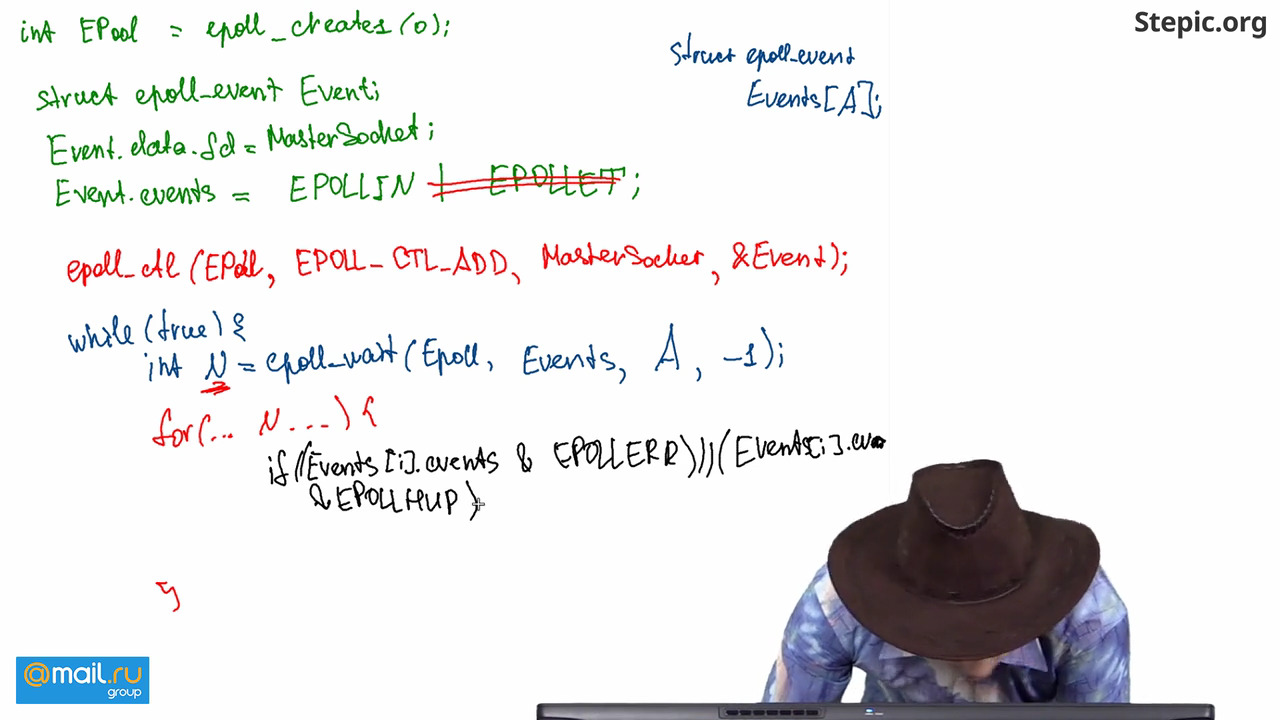 Stepic.org
int EPool = epoll_creates(0);
struct epoll_event
Events[A];
struct epoll_event Event;
Event.data.fd = MasterSocket;
Event.events = EPOLLIN | EPOLLET ;
epoll_ctl (EPoll, EPOLL_CTL_ADD, MasterSocker, &Event);
while (true) {
int N = epoll_wait (Epoll, Events, A, -1);
for(... N ...) {
if ((Events[i].events & EPOLLERR)||(Events[i].eve
& EPOLLHUP)
}
@mail.ru
group